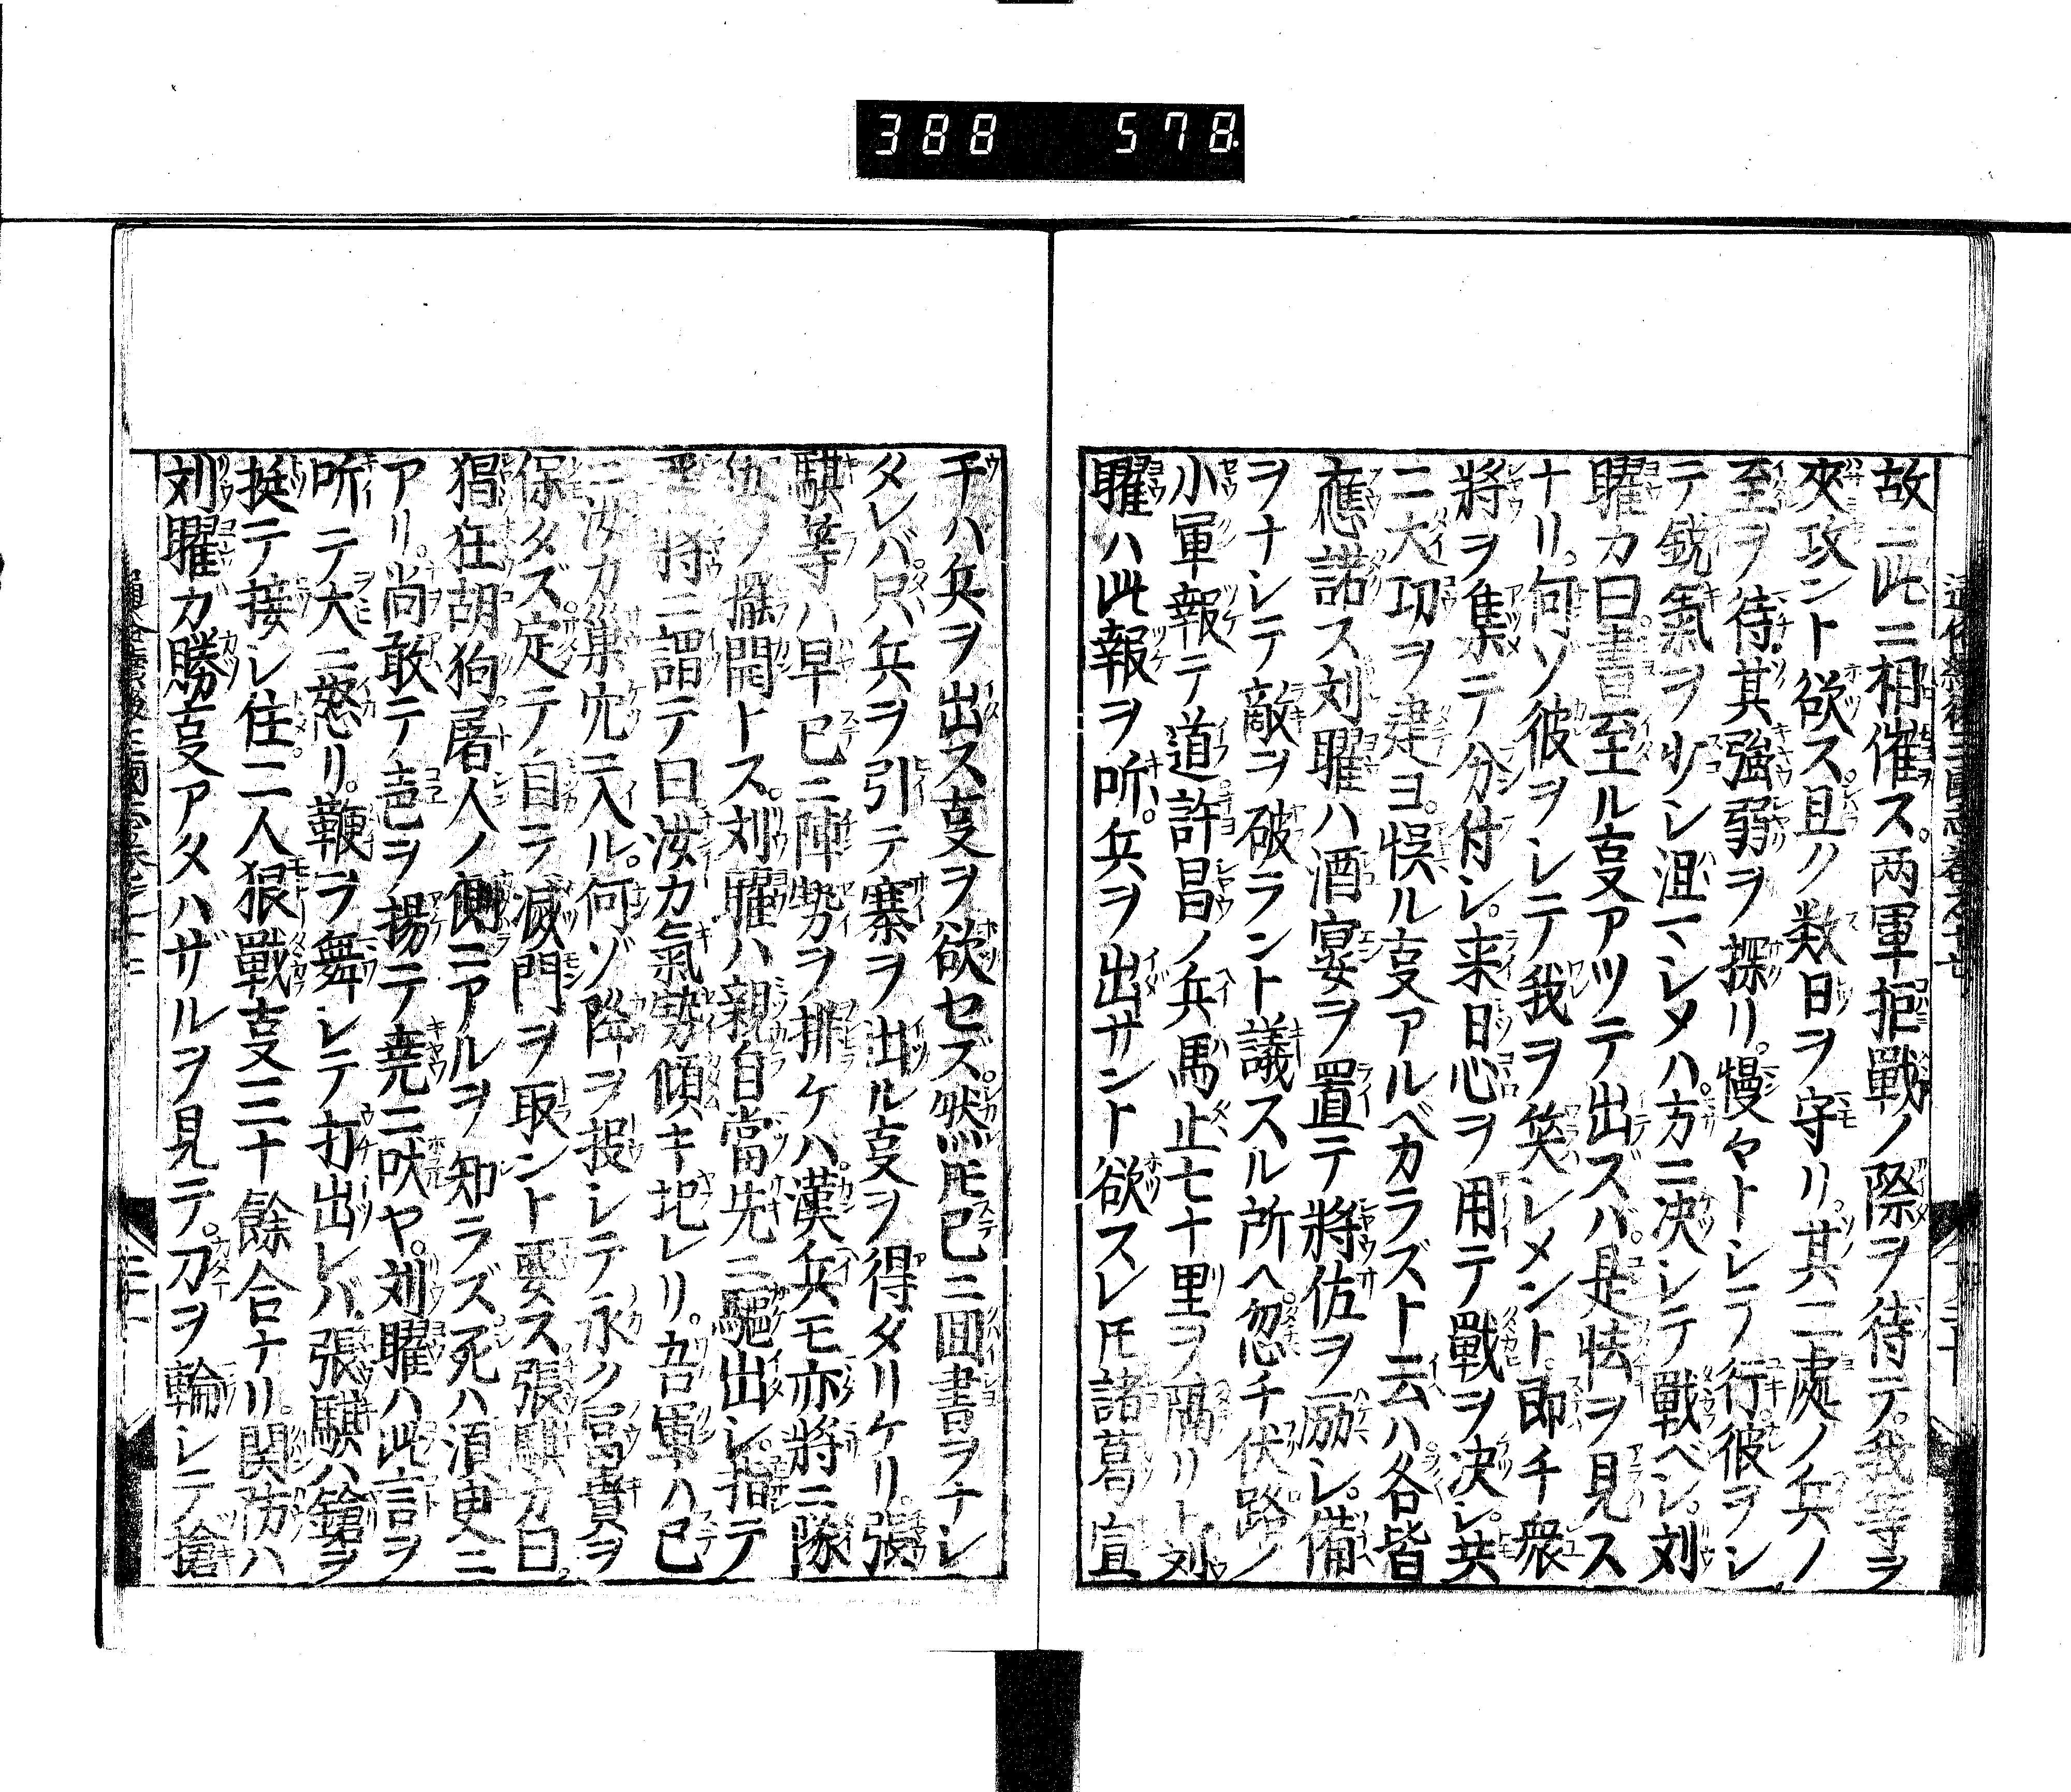 388 578
故ニ此ニ相催ス。両軍拒戰ノ際ヲ待テ。我等ヲ
夾攻ント欲ス。且ク数日ヲ守リ。其二處ノ兵ノ
至ヲ待。其強弱ヲ探リ。慢々トシテ行。彼ヲシ
テ鋭氣ヲ少シ沮マシメハ。方ニ決シテ戰ベシ。刘
曜カ曰書至ル𫝆アツテ出ズバ。是怯ヲ見ス
ナリ。何ゾ彼ヲシテ我ヲ笑シメント。即チ衆
將ヲ集テ分付シ。来日心ヲ用テ戰ヲ決シ。共
ニ大功ヲ建ヨ。悞ル𫝆アルベカラズト云ハ各皆
應諾ス刘曜ハ酒宴ヲ置テ將佐ヲ励シ。備
ヲナシテ敵ヲ破ラント議スル所ヘ忽チ伏路ノ
小軍報テ道許昌ノ兵馬止七十里ヲ隔リト刘
曜ハ此報ヲ听。兵ヲ出サント欲スレ𪜈諸葛宣
于ハ兵ヲ出ス𫝆ヲ欲セズ。然𪜈已ニ囬書ヲナシ
タレバ。只兵ヲ引テ寨ヲ出ル𫝆ヲ得タリケリ。張
騏等ハ早已ニ陣勢ヲ排ケハ。漢兵モ亦將ニ隊
伍ノ擺開トス。刘曜ハ親自當先ニ驅出シ。指テ
晋將ニ謂テ曰汝カ氣勢傾キ圯レリ。吾軍ハ已
ニ汝カ巣穴ニ入ル。何ゾ降ヲ投シテ永ク冨貴ヲ
保タズ。定テ自ラ滅門ヲ取ント要ス。張騏カ曰。
猖狂胡狗屠人ノ側ニアルヲ知ラズ死ハ湏臾ニ
アリ。尚敢テ声ヲ揚テ堯ニ吠ヤ。刘曜ハ此言ヲ
听テ大ニ怒リ。鞭ヲ舞シテ打出レバ。張騏ハ鎗ヲ
挺テ接シ住。二人狠戰𫝆三十餘合ナリ。関防ハ
刘曜カ勝𫝆アタハザルヲ見テ。刀ヲ輪シテ搶